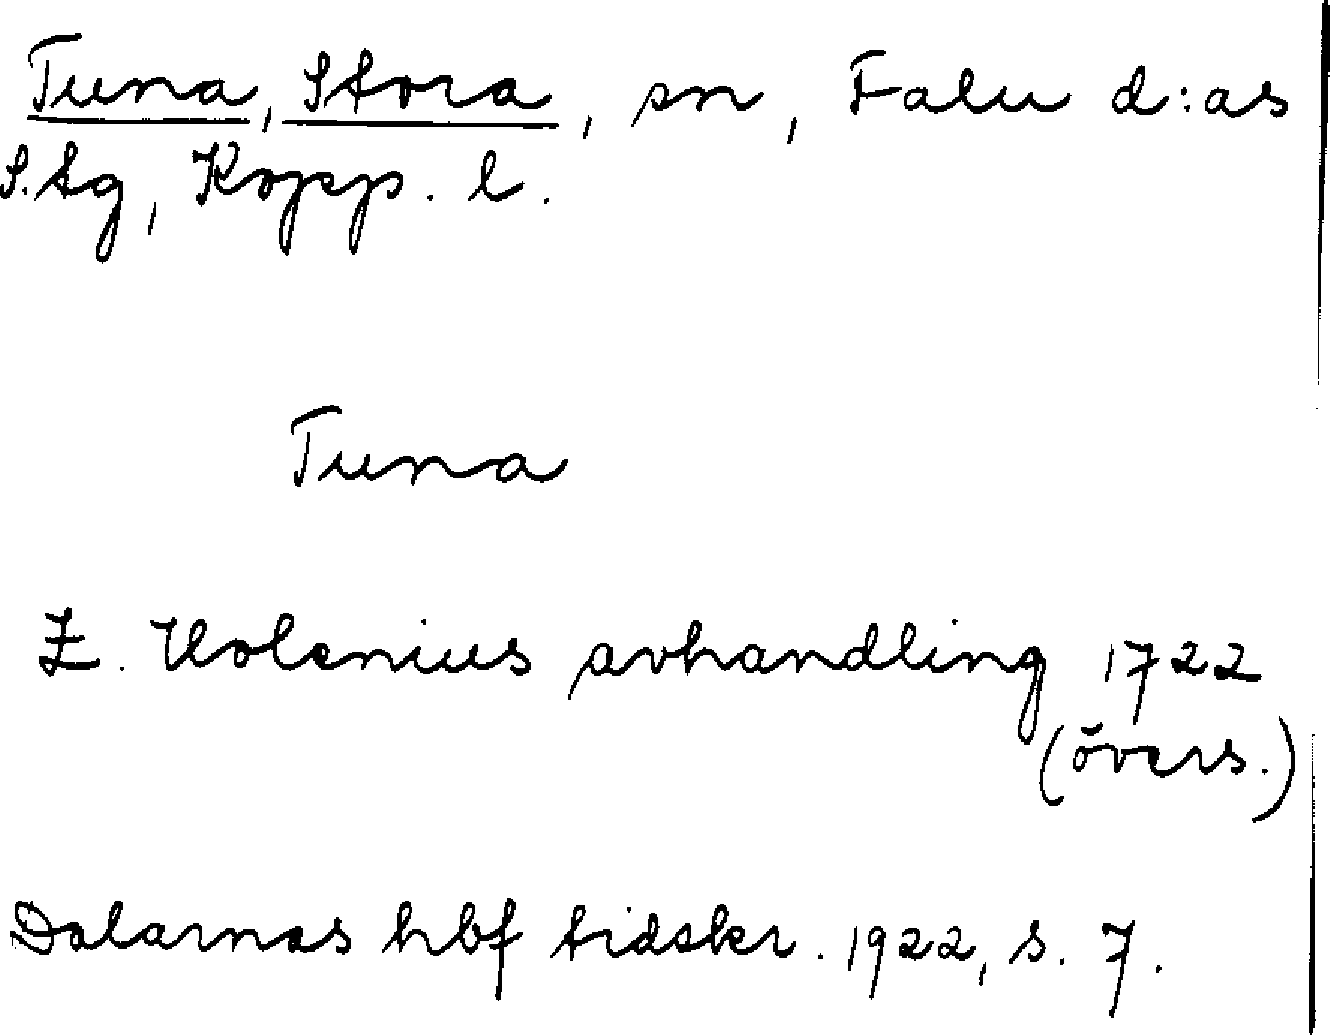 Tuna, Stora, sn, Falu d:as
S.tg, Kopp. l.
Tuna
E. Holenius avhandling 1722
(övers.)
Dalarnas hbf tidskr. 1922, s. 7.